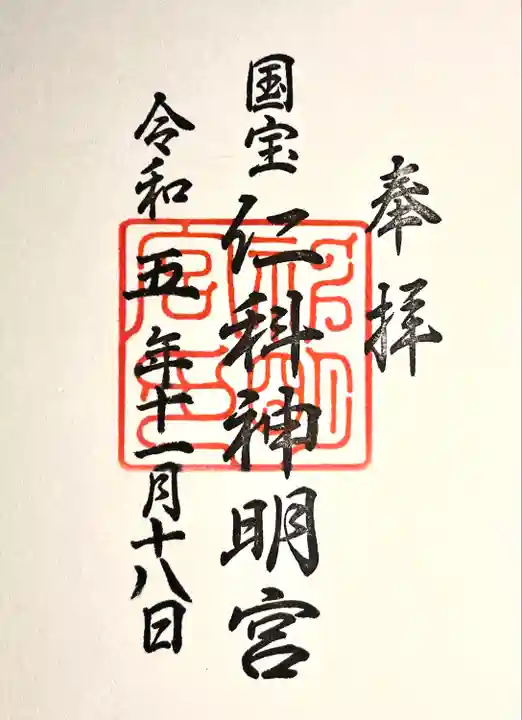 奉拝
国宝 仁科神明宮
令和五年十一月十八日